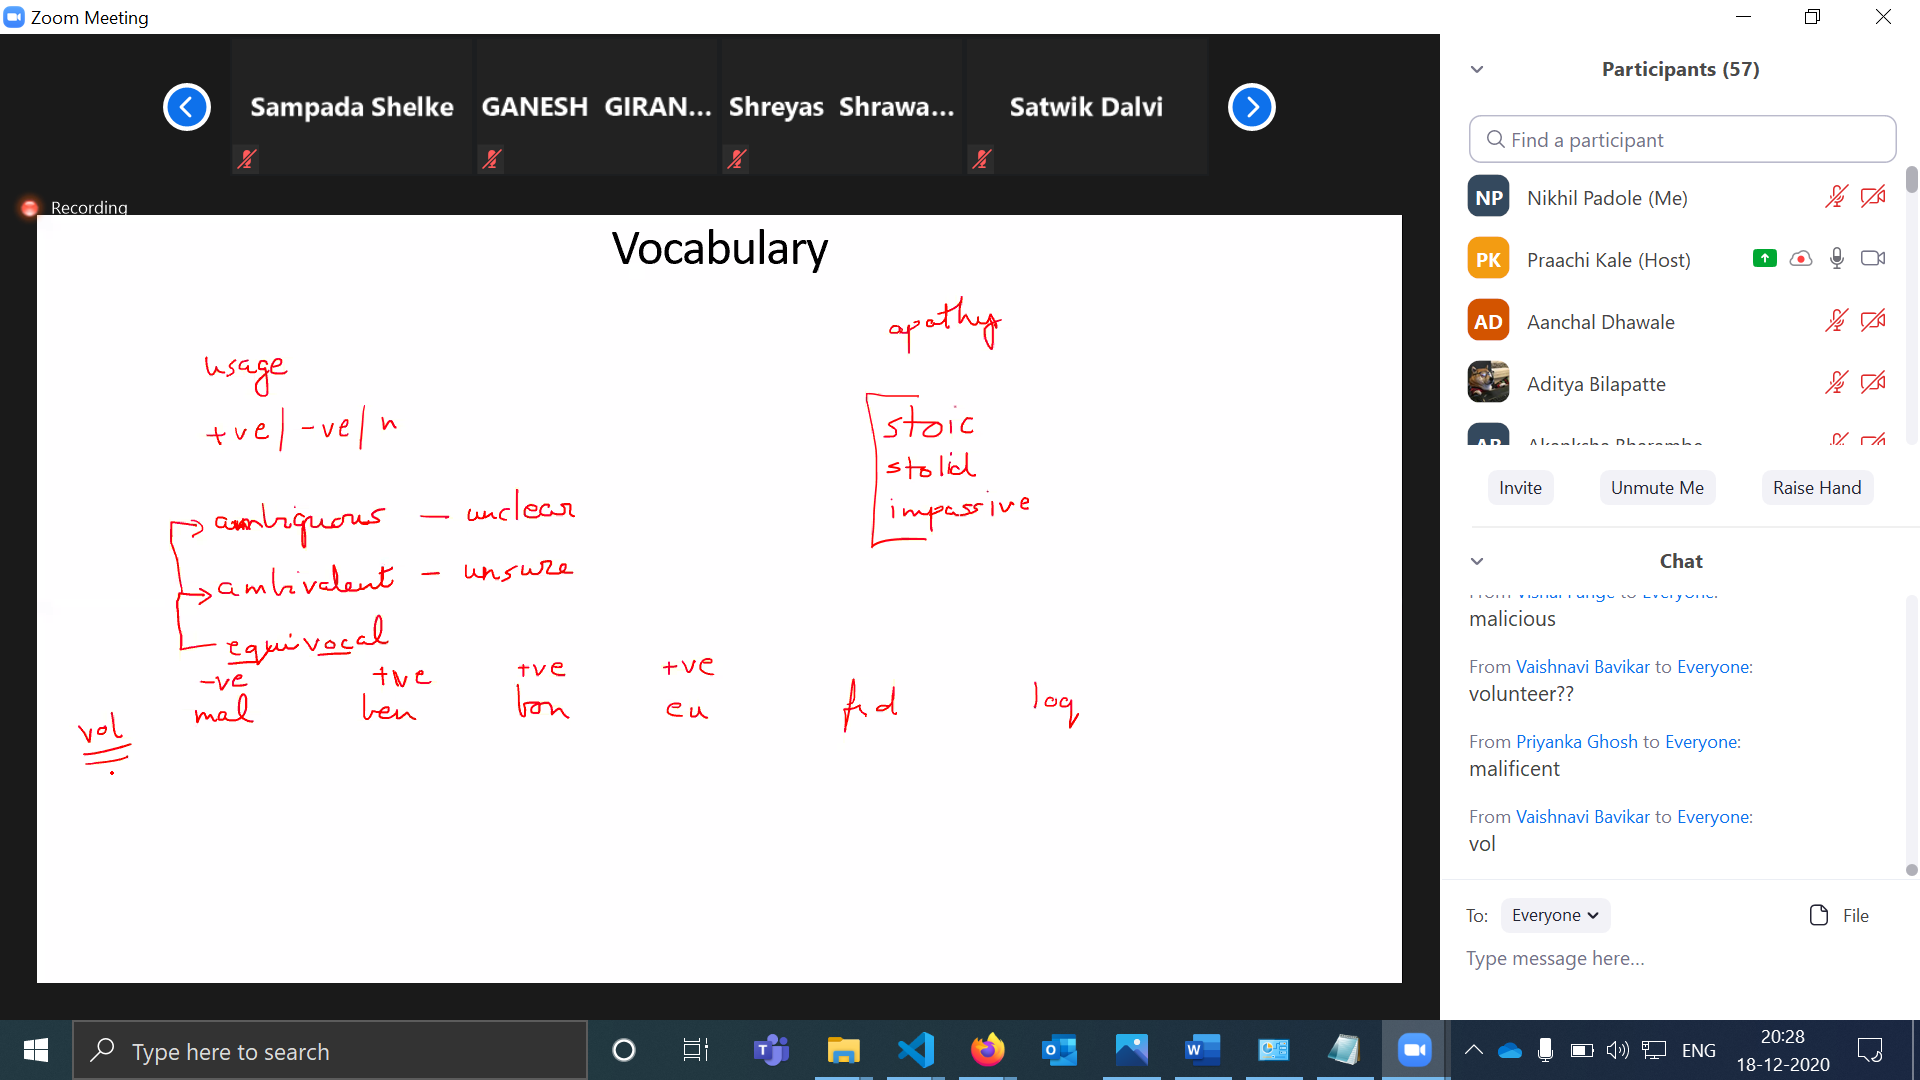 Zoom Meeting
Sampada Shelke
GANESH GIRAN...
Shreyas Shrawa...
Satwik Dalvi
Recording
Vocabulary
apathy
usage
+ve | -ve | n
stoic
stolid
impassive
ambiguous — unclear
ambivalent — unsure
equivocal
-ve +ve +ve +ve
mal ben bon eu fid loq
vol
Participants (57)
Find a participant
NP Nikhil Padole (Me)
PK Praachi Kale (Host)
AD Aanchal Dhawale
Aditya Bilapatte
Invite Unmute Me Raise Hand
Chat
malicious
From Vaishnavi Bavikar to Everyone:
volunteer??
From Priyanka Ghosh to Everyone:
malificent
From Vaishnavi Bavikar to Everyone:
vol
To: Everyone File
Type message here...
Type here to search
ENG
20:28
18-12-2020